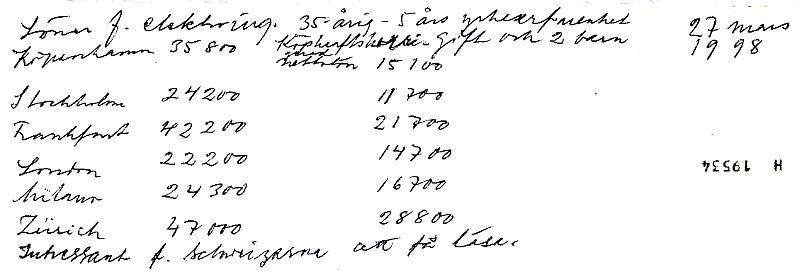 Löner f. elektroing. 35-årig - 5 års yrkeserfarenhet
27 mars 1998
Köpenhamn 35 800 Köpkraft - Gift och 2 barn
nettolön 15 100
Stockholm 24 200 11 700
Frankfurt 42 200 21 700
London 22200 14700
Milano 24 300 16700
Zürich 47 000 28 800
Intressant f. Schweizarna att få läsa.
H 19534